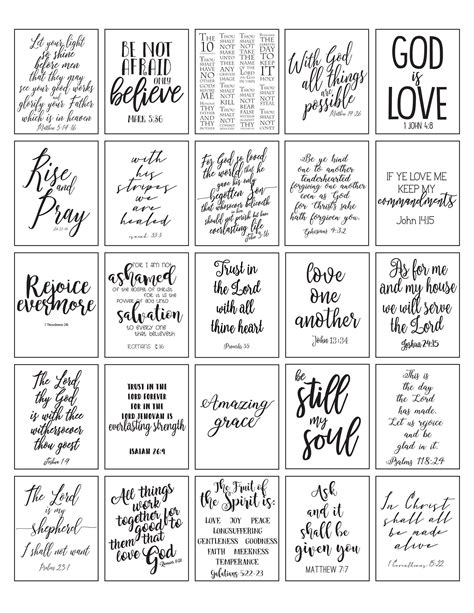 Let your light
so shine
before men
that they may
see your good works
glorify your Father
which is in heaven
Matthew 5:14-16
BE NOT
AFRAID
only
believe
MARK 5:36
THE
10
THOU
SHALT
HAVE
NO
OTHER
GODS
THOU
SHALT
NOT
KILL
THOU
SHALT
NOT
STEAL
With God
all things
are
possible
Matthew 19:26
GOD
is
LOVE
1 JOHN 4:8
Rise
and
Pray
with
his
stripes
we
are
healed
isaiah 53:5
For God so loved
the world that he
gave his only
begotten Son
that whosoever believeth
in him
should not perish but have
everlasting life
John 3:16
Be ye kind
one to another
tenderhearted
forgiving one another
even as God
for Christ's sake
hath forgiven you.
Ephesians 4:32
IF YE LOVE ME
KEEP MY
commandments
John 14:15
Rejoice
evermore
FOR I AM NOT
ashamed
OF THE GOSPEL OF CHRIST
FOR IT IS THE
POWER OF GOD UNTO
salvation
TO EVERY ONE
THAT BELIEVETH
ROMANS 1:16
Trust in
the Lord
with all
thine heart
Proverbs 3:5
love
one
another
John 13:34
As for me
and my house
we will serve
the Lord
Joshua 24:15
The Lord
thy God
is with thee
whithersoever
thou goest
Joshua 1:9
TRUST IN THE
LORD FOREVER
FOR IN THE
LORD JEHOVAH IS
everlasting strength
ISAIAH 26:4
Amazing
grace
be
still
my
SOUL
This is
the day
the Lord
has made.
Let us rejoice
and be
glad in it.
Psalms 118:24
The Lord
is my
shepherd
I shall not want
Psalms 23:1
All things
work
together for
good to
them that
love God
The Fruit of
the Spirit is:
LOVE JOY PEACE
LONGSUFFERING
GENTLENESS GOODNESS
FAITH MEEKNESS
TEMPERANCE
Galatians 5:22-23
Ask
and it
shall be
given you
MATTHEW 7:7
In Christ
shall all
be made
alive
1 Corinthians 15:22